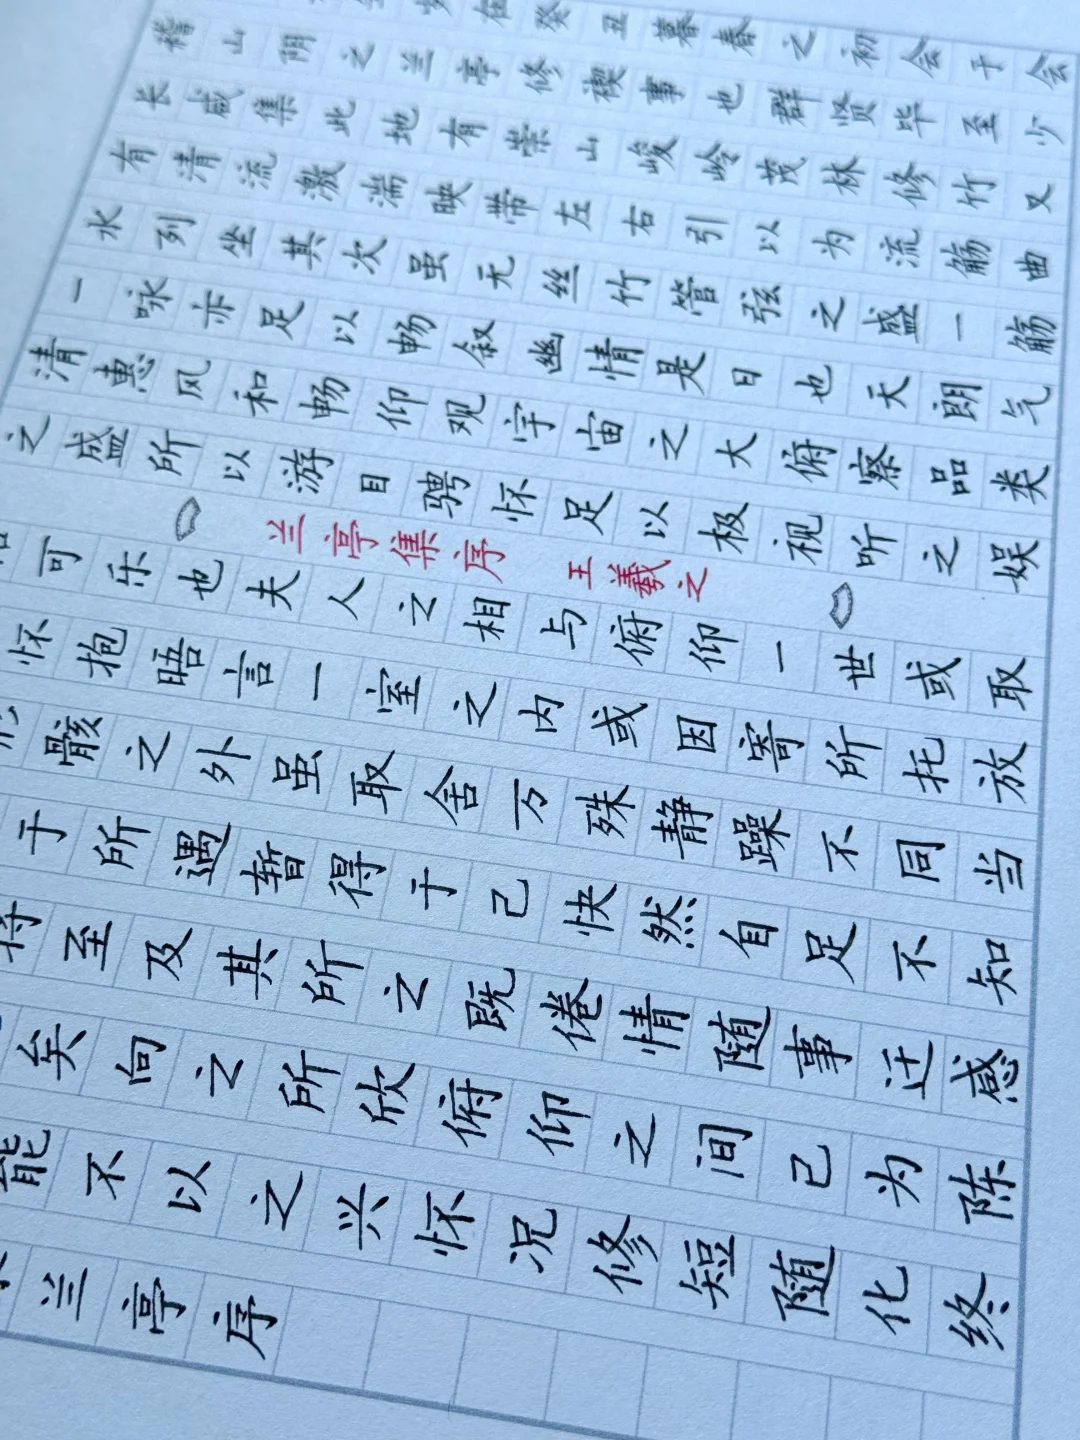 在癸丑暮春之初会于会
稽山阴之兰亭修禊事也群贤毕至少
长咸集此地有崇山峻岭茂林修竹又
有清流激湍映带左右引以为流觞曲
水列坐其次虽无丝竹管弦之盛一觞
一咏亦足以畅叙幽情是日也天朗气
清惠风和畅仰观宇宙之大俯察品类
之盛所以游目骋怀足以极视听之娱
兰亭集序 王羲之
可乐也夫人之相与俯仰一世或取
怀抱晤言一室之内或因寄所托放
骸之外虽取舍万殊静躁不同当
于所遇暂得于己快然自足不知
将至及其所之既倦情随事迁感
矣向之所欣俯仰之间已为陈
能不以之兴怀况修短随化终
兰亭序